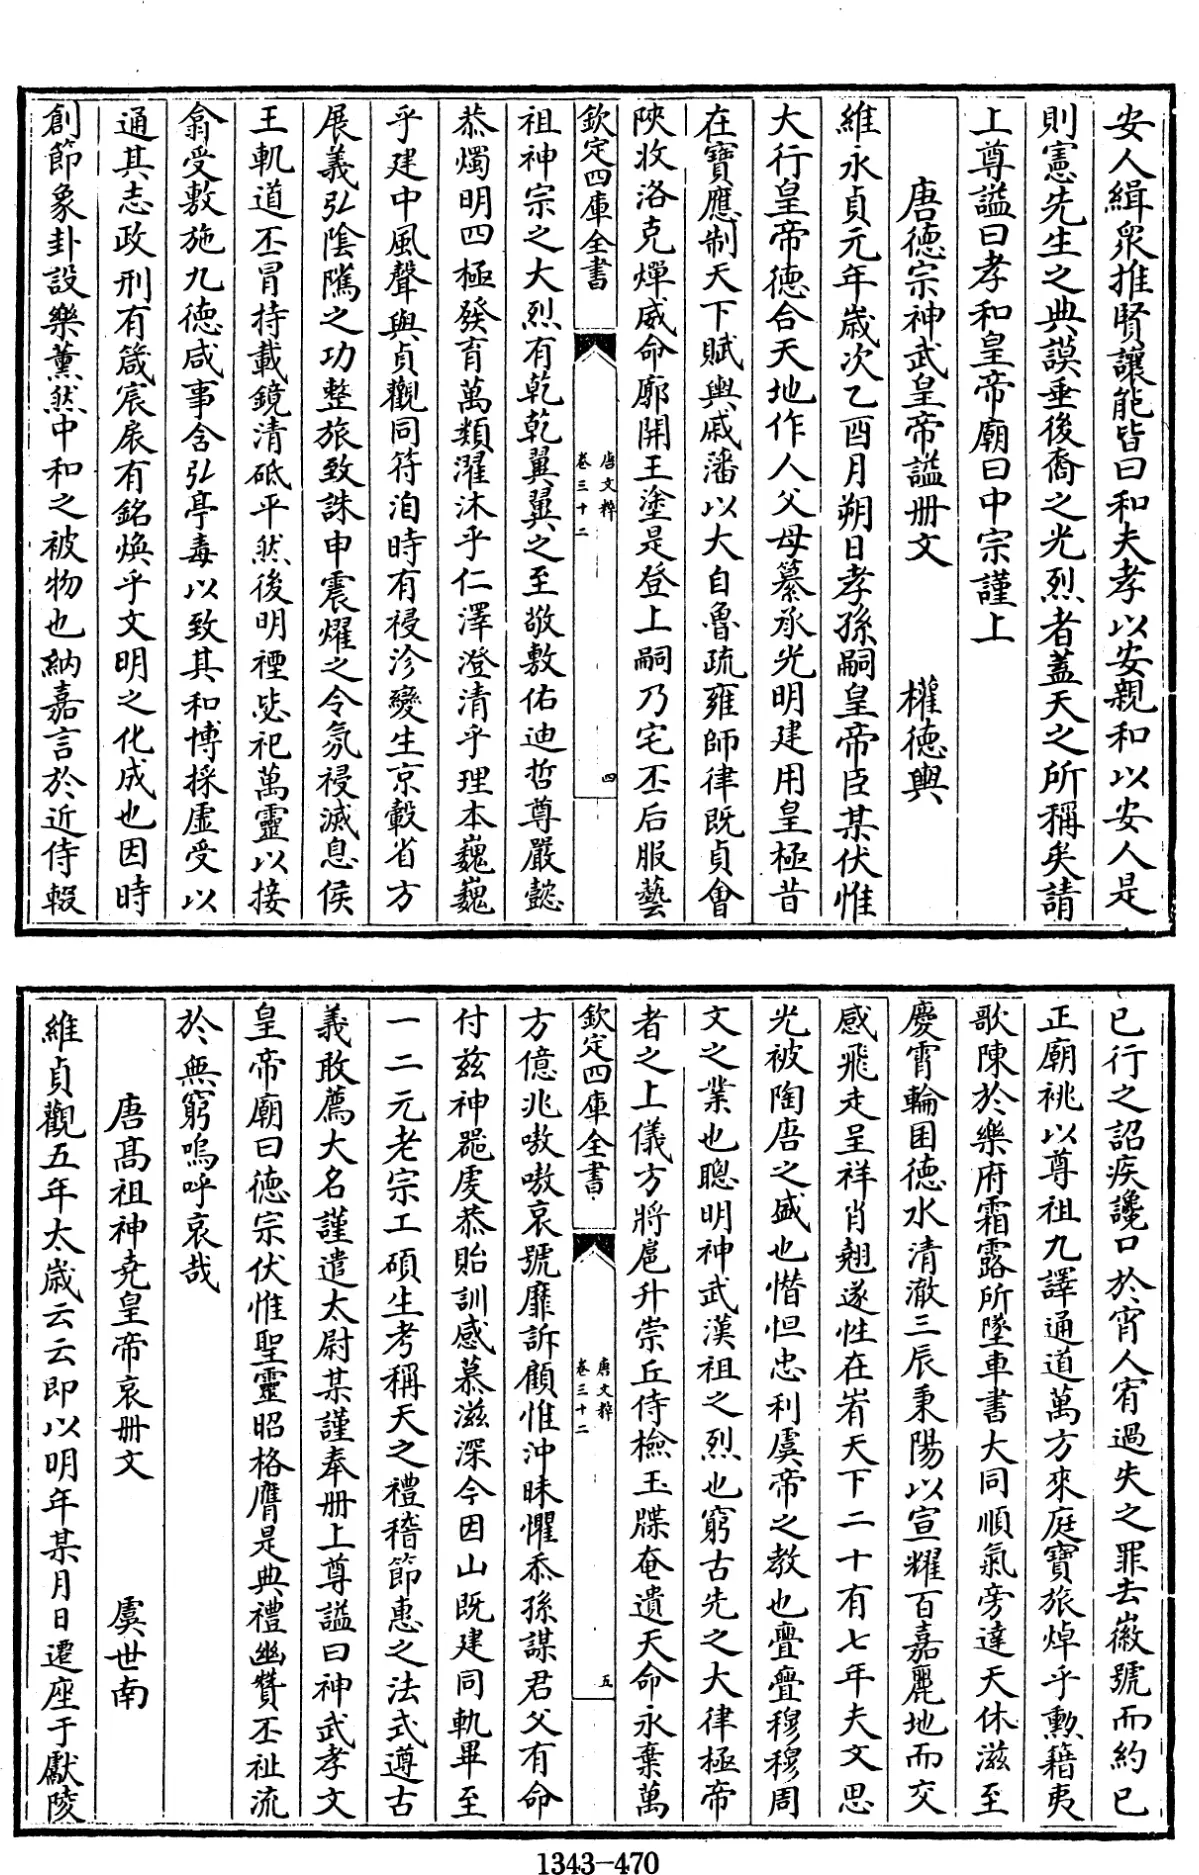 安人緝衆推賢讓能皆曰和夫孝以安親和以安人是
則憲先生之典謨垂後裔之光烈者蓋天之所稱矣請
上尊諡曰孝和皇帝廟曰中宗謹上
唐德宗神武皇帝諡册文　權德輿
維永貞元年歲次乙酉月朔日孝孫嗣皇帝臣某伏惟
大行皇帝德合天地作人父母纂承光明建用皇極昔
在寶應制天下賦輿戚藩以大自魯疏雍師律既貞會
陜收洛克燀威命廓開王塗是登上嗣乃宅丕后服藝
欽定四庫全書
唐文粹
卷三十二
四
祖神宗之大烈有乾乾翼翼之至敬敷佑迪哲尊嚴懿
恭燭明四極發育萬類濯沐乎仁澤澄清乎理本巍巍
乎建中風聲與貞觀同符洎時有祲沴變生京轂省方
展義弘陰隲之功整旅致誅申震燿之令氛祲滅息侯
王軌道丕冒持載鏡清砥平然後明禋毖祀萬靈以接
翕受敷施九德咸事含弘亭毒以致其和博採虛受以
通其志政刑有箴扆扆有銘煥乎文明之化成也因時
創節象卦設樂薰然中和之被物也納嘉言於近侍輟
已行之詔疾讒口於宵人宥過失之罪去徽號而約已
正廟祧以尊祖九譯通道萬方來庭寶旅焯乎勲籍夷
歌陳於樂府霜露所墜車書大同順氣旁達天休滋至
慶霄輪囷德水清澈三辰秉陽以宣耀百嘉麗地而交
感飛走呈祥肖翹遂性在宥天下二十有七年夫文思
光被陶唐之盛也憯怛忠利虞帝之教也亹亹穆穆周
文之業也聰明神武漢祖之烈也窮古先之大律極帝
者之上儀方將扈升崇丘侍檢玉牒奄遺天命永棄萬
欽定四庫全書
唐文粹
卷三十二
五
方億兆嗷嗷哀號靡訴顧惟沖昧懼忝孫謀君父有命
付兹神器虔恭貽訓感慕滋深今因山既建同軌畢至
一二元老宗工碩生考稱天之禮稽節惠之法式遵古
義敢薦大名謹遣太尉某謹奉册上尊諡曰神武孝文
皇帝廟曰德宗伏惟聖靈昭格膺是典禮幽贊丕祉流
於無窮嗚呼哀哉
唐髙祖神堯皇帝哀册文　虞世南
維貞觀五年太歲云云即以明年某月日遷座于獻陵
1343-470